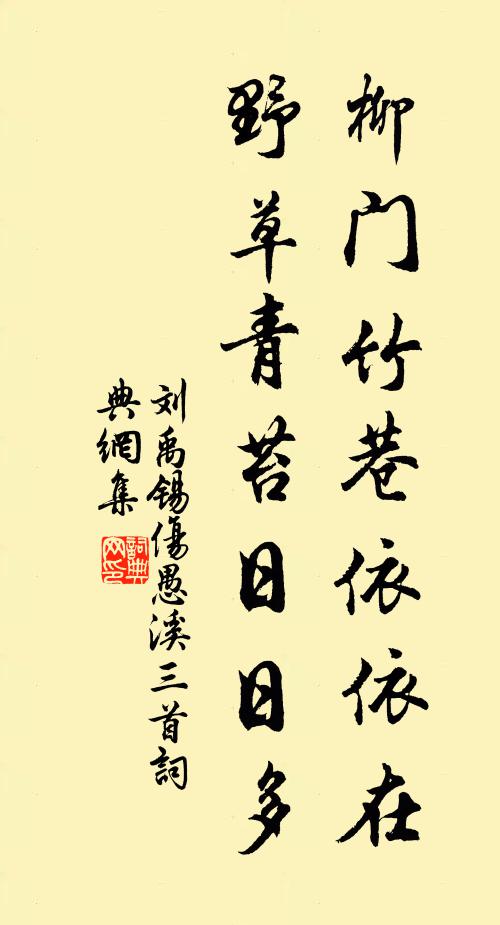 柳门竹巷依依在
野草青苔日日多
刘禹锡傷愚溪三首詞
典網集
詞典網印